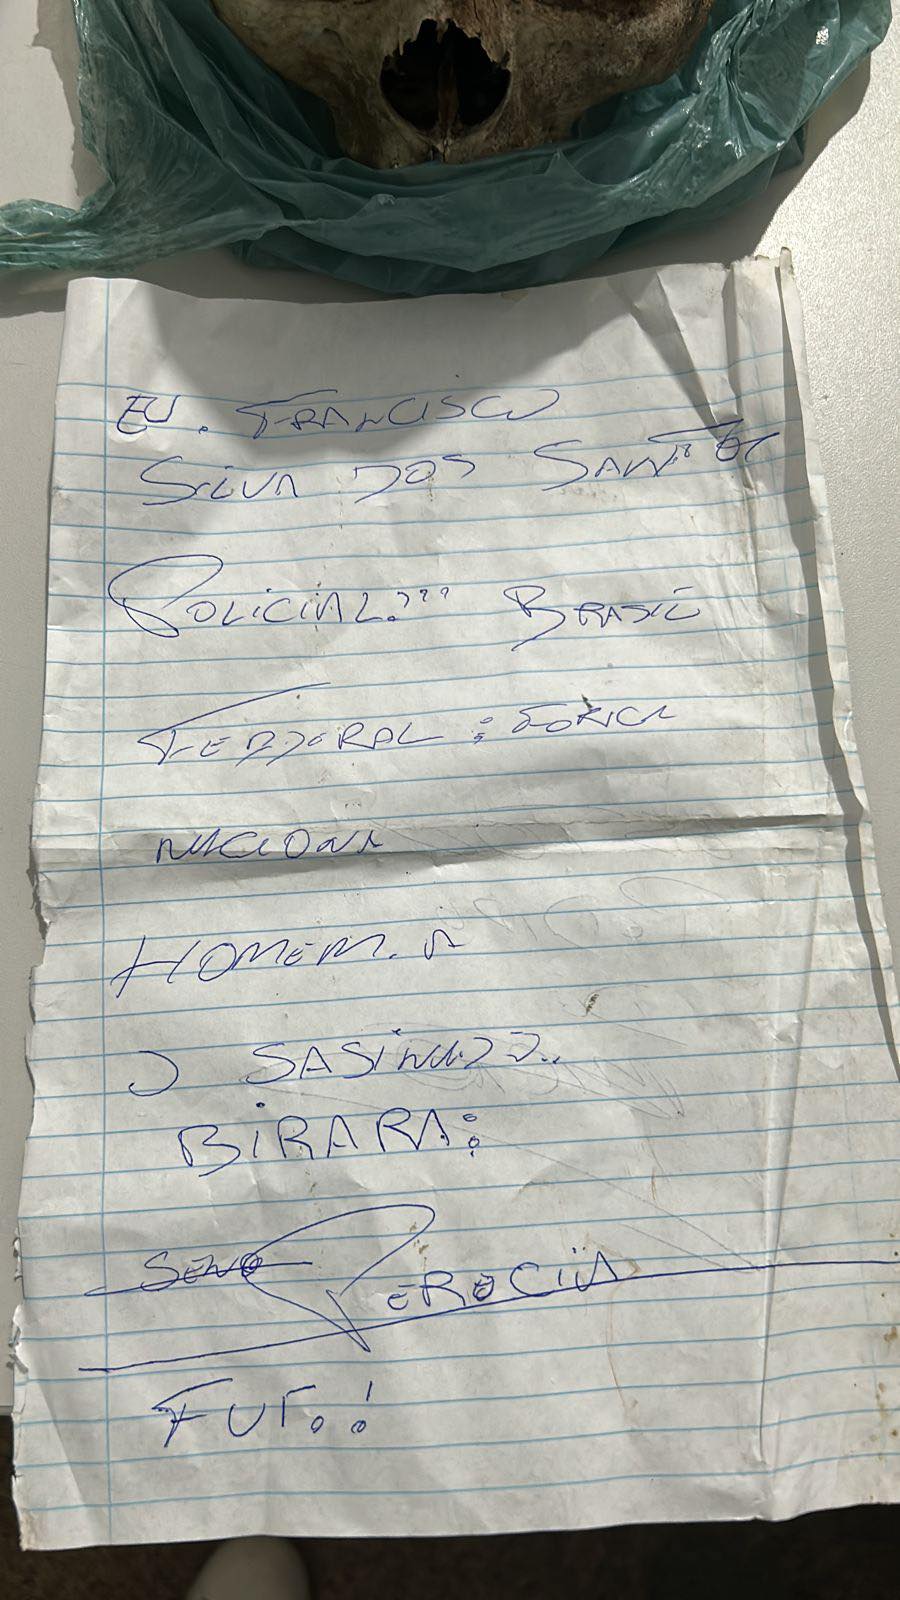 EU. FRANCISCO
SILVA DOS SANTOS
POLICIAL.??? BRASIL
FEDDERAL : FORICA
NACIONA
HOMEM. A
O SASINADO..
BIRARA:
PERECIA
FUI. !